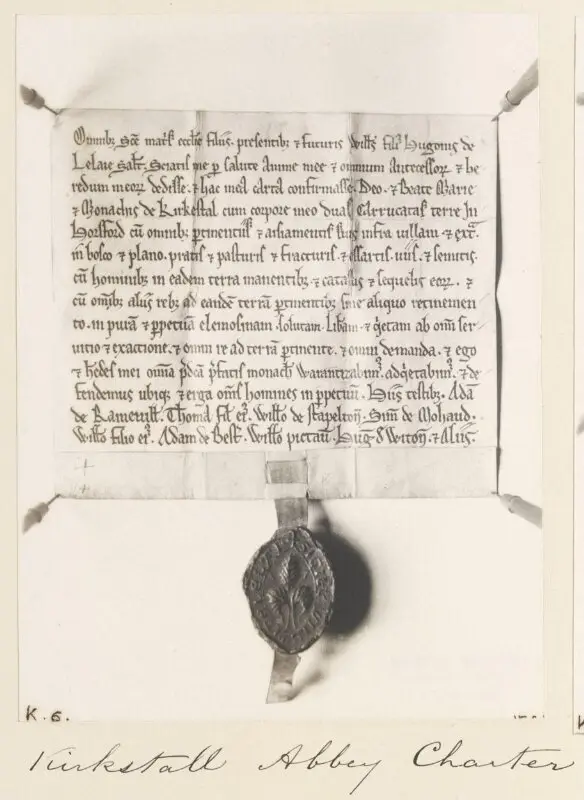 Omnibȝ Sc̄e mat͛s eccl̄ie filiis. presentibȝ ⁊ futuris Will͛s fili͛ Hugonis de
Lelaie Salt̄. Sciatis me p̱ salute Anime mee ⁊ omnium Antecessoꝝ ⁊ he
redum meoꝝ dedisse. ⁊ hac mea carta confirmasse. Deo. ⁊ Beate Marie
⁊ Monachis de Kirkestal cum corpore meo duas Carrucatas terre In
Horsford cū omnibȝ ꝑtinentiis ⁊ aisiamentis suis infra uillam. ⁊ ext͛.
in bosco ⁊ plano. pratis ⁊ pasturis ⁊ fracturis. ⁊ essartis. uiis. ⁊ semitis.
cū hominibȝ in eadem terra manentibȝ. ⁊ catallis ⁊ sequelis eoꝝ. ⁊
cū om̄ibȝ aliis rebȝ ad eandē terrā ꝑtinentibȝ sine aliquo retinemen
to. in purā ⁊ ꝑpetuā elemosinam. solutam. Lib̄am. ⁊ q͛etam ab om̄i ser
uitio ⁊ exactione. ⁊ omni re ad terrā ꝑtinente. ⁊ omni demanda. ⁊ ego
⁊ h̄edes mei omīa p̄d̄c̄a p̄fatis monach̄ Warantizabim͛. adq͛etabim͛. ⁊ de
fendemus ubiqȝ ⁊ erga om̄s homines in ꝑpetuū. Hiis testibȝ. Adā
de Ramevill̄. Thom̄a fil̄ ei͛. Will̄o de stapelton̄. Sim̄ de Mohaud.
Will̄o filio ei͛. Adam de Best̄. Will̄o pictau̅. Hug̅ d̄ Witon̄. ⁊ Aliis.
K. 6.
Kirkstall Abbey Charter